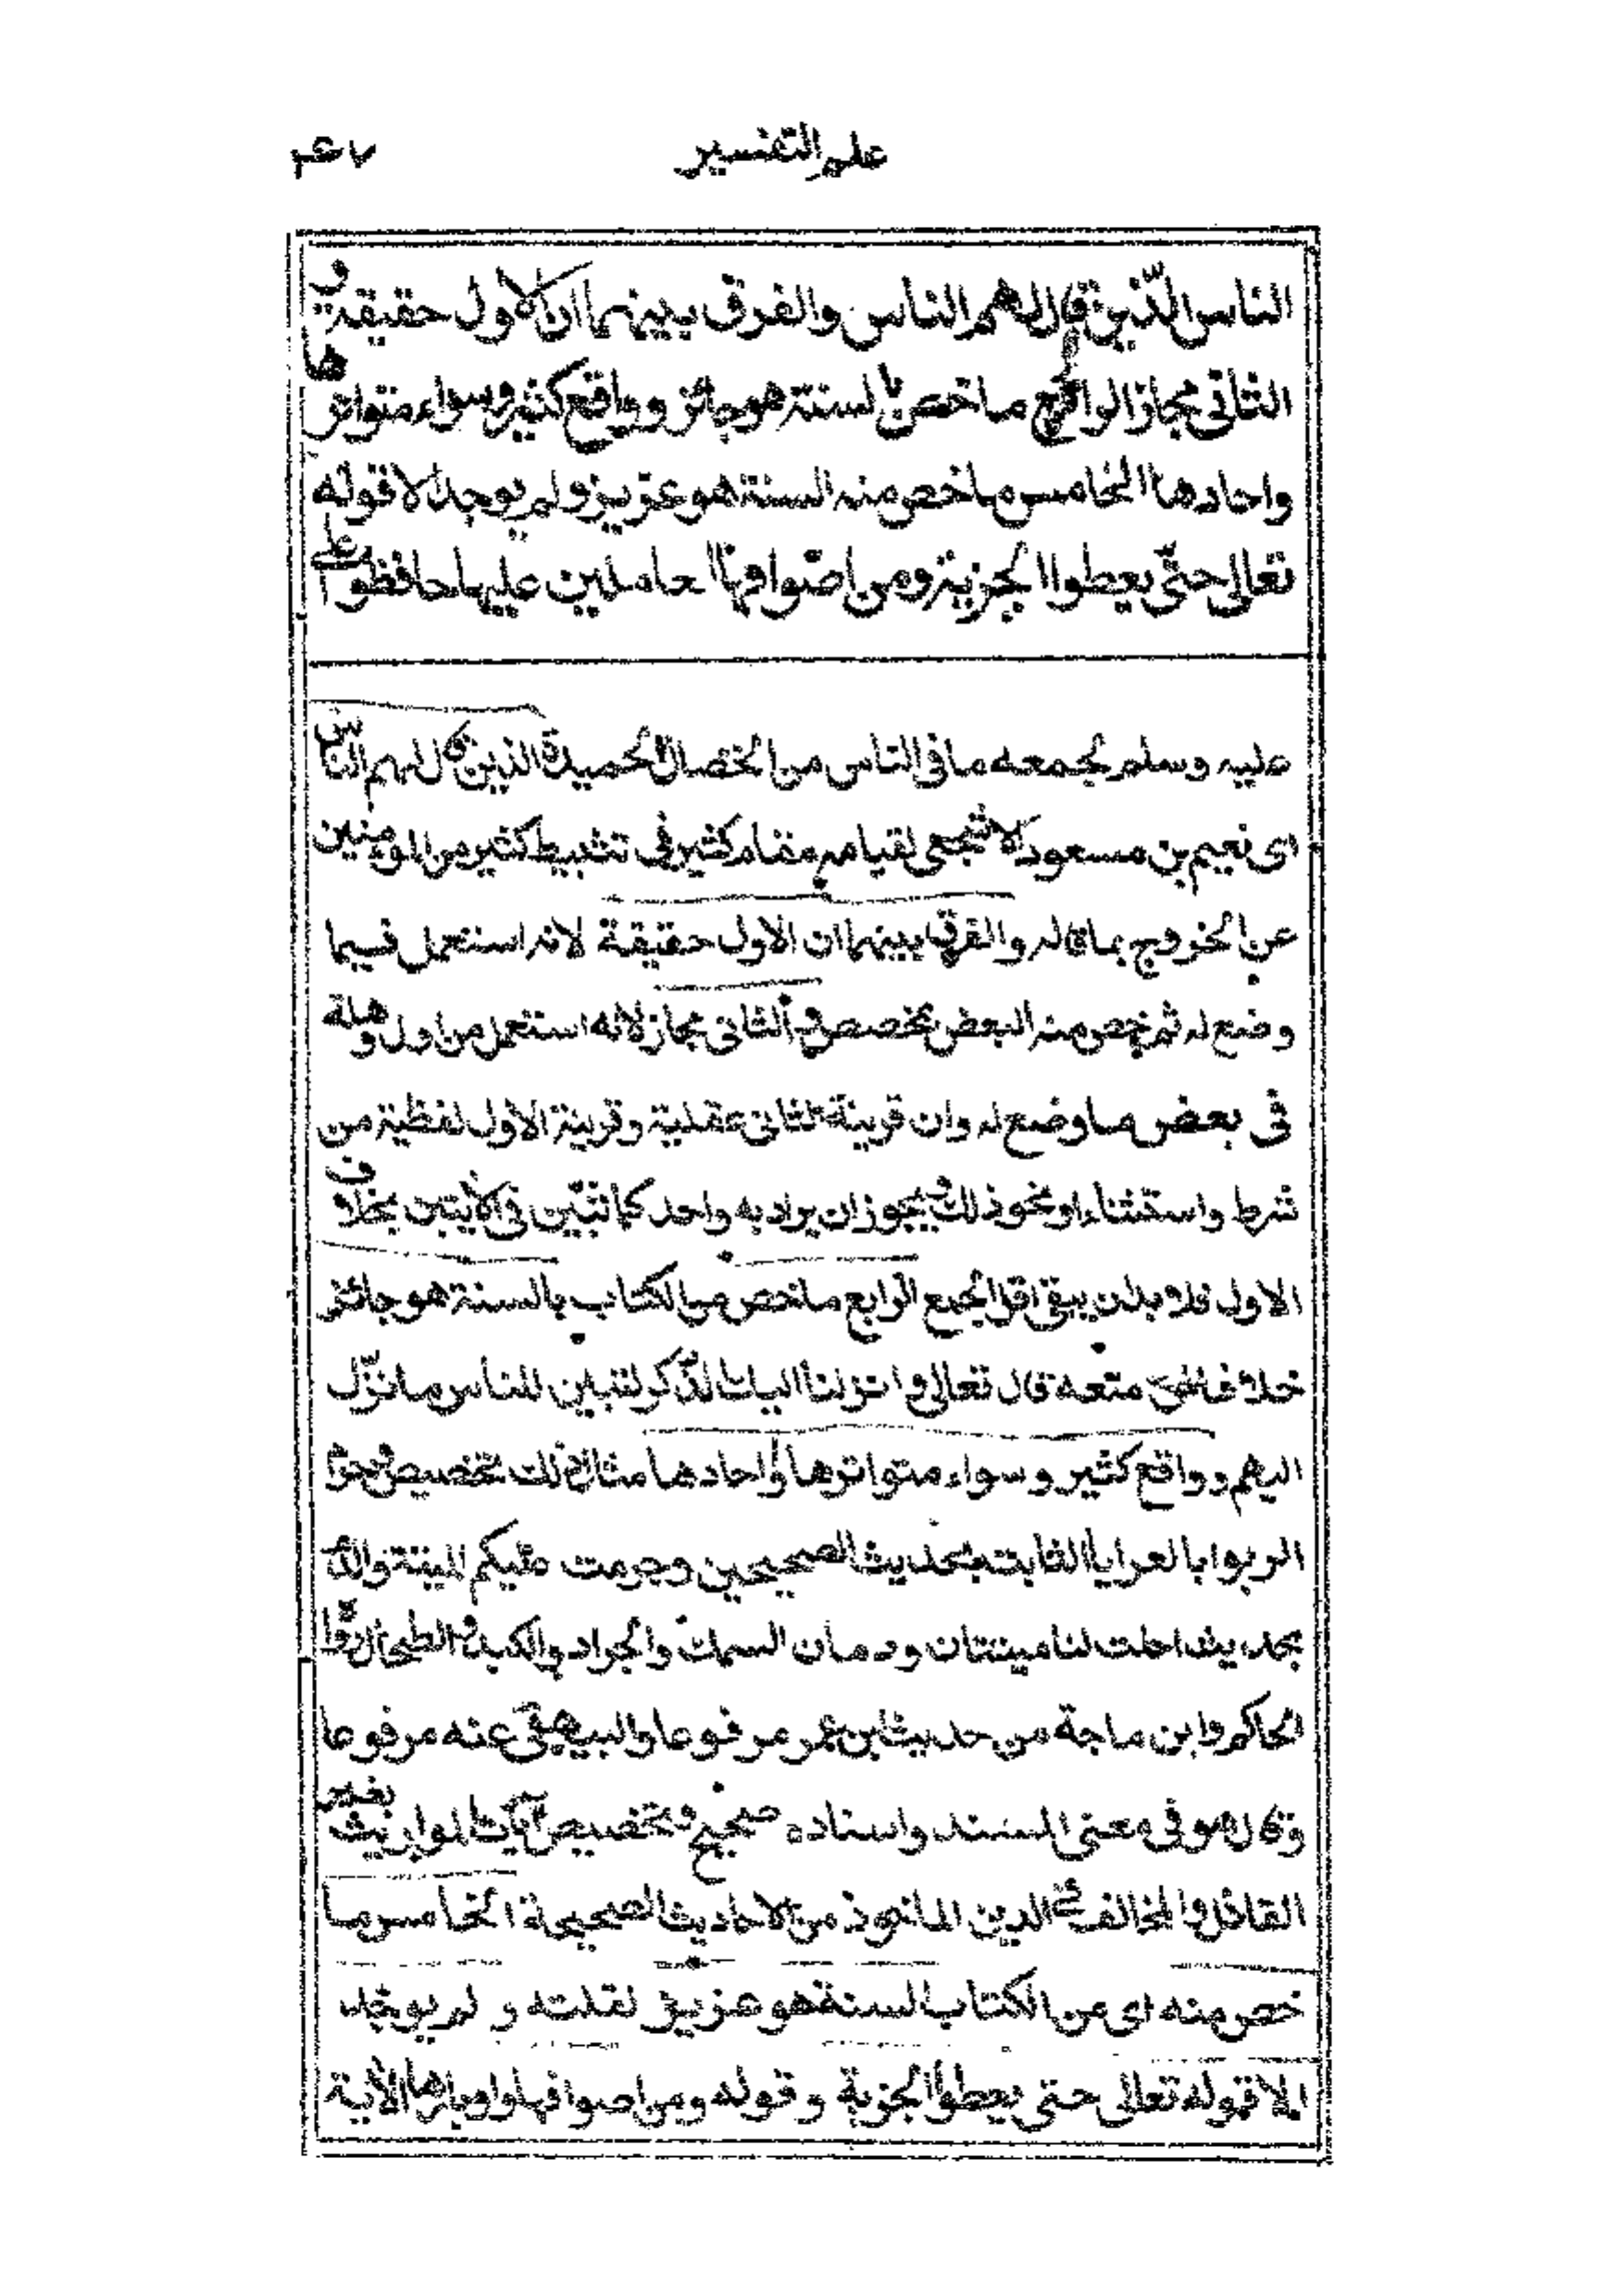 علم التفسير ٤٧
الناس الّذين قال لهم الناس والفرق بينهما ان الاول حقيقة و
الثانى مجاز الرابع ما خص بالسنة هو جائز وواقع كثير وسواء متواترها
واحادها الخامس ما خص منه السنة هو عزيز ولم يوجد الا قوله
تعالى حتّى يعطوا الجزية ومن اصوافها العاملين عليها حافظوا على
عليه وسلم لجمعه ما فى الناس من الخصال الحميدة الذين قال لهم الناس
اى نعيم بن مسعود الاشجعى لقيامه مقام كثير فى تثبيط كثير من المومنين
عن الخروج بما قاله والفرق بينهما ان الاول حقيقة لانه استعمل فيما
وضع له ثم خص منه البعض بمخصص والثانى مجاز لانه استعمل من اول وهلة
فى بعض ما وضع له وان قرينة الثانى عقلية وقرينة الاول لفظية من
شرط واستثناء او نحو ذلك ويجوز ان يراد به واحد كما تبيّن فى الايتين بخلاف
الاول فلا بد ان يبقى اقل الجمع الرابع ما خص من الكتاب بالسنة هو جائز
خلافا لمن منعه قال تعالى وانزلنا اليك الذّكر لتبين للناس ما نزّل
اليهم وواقع كثير وسواء متواترها واحادها مثال ذلك تخصيص
الربوا بالعرايا الثابت بحديث الصحيحين وحرمت عليكم الميتة والدم
بحديث احلت لنا ميتتان ودمان السمك والجراد والكبد والطحال رواه
الحاكم وابن ماجة من حديث ابن عمر مرفوعا والبيهقى عنه مرفوعا
وقال هو فى معنى المسند واسناده صحيح وتخصيص آيات المواريث بغير
القاتل والمخالف فى الدين الماخوذ من الاحاديث الصحيحة الخامس ما
خص منه اى من الكتاب السنة هو عزيز لقلته و لم يوجد
الا قوله تعالى حتى يعطوا الجزية وقوله ومن اصوافها واوبارها الآية